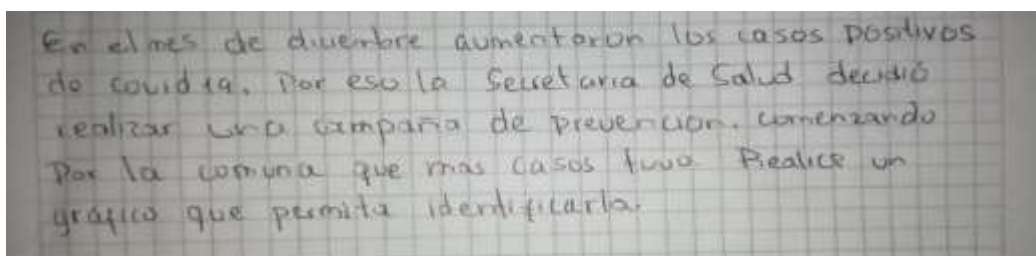 En el mes de diciembre aumentaron los casos positivos
de covid 19. Por eso la Secretaria de Salud decidió
realizar una campaña de prevencion. comenzando
Por la comuna que mas casos tuvo Realice un
gráfico que permita identificarla.